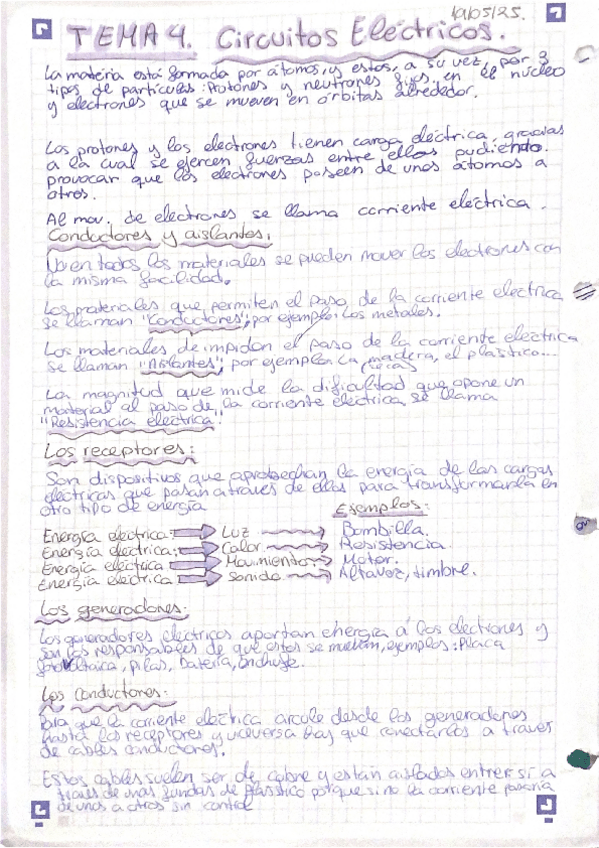 19/05/25.
TEMA 4. Circuitos Eléctricos.
La materia está formada por átomos, y estos, a su vez, por 3
tipos de partículas: Protones y neutrones fijos, en el núcleo
y electrones que se mueven en órbitas alrededor.
Los protones y los electrones tienen carga eléctrica, gracias
a la cual se ejercen fuerzas entre ellas pudiendo.
provocar que los electrones paseen de unos átomos a
otros.
Al mov. de electrones se llama corriente eléctrica.
Conductores y aislantes.
No en todos los materiales se pueden mover los electrones con
la misma facilidad.
Los materiales que permiten el paso de la corriente electrica
se llaman "Conductores", por ejemplo: Los metales.
Los materiales de impidan el paso de la corriente eléctrica
se llaman "Aislantes", por ejemplo: La madera, el plastico...
La magnitud que mide la dificultad que opone un
material al paso de la corriente eléctrica, se llama
"Resistencia eléctrica".
Los receptores:
Son dispositivos que aprobechan la energía de las cargas
eléctricas que pasan a traves de ellos para transformarla en
otro tipo de energía
Ejemplos:
Energía eléctrica: Luz Bombilla.
Energía eléctrica: Calor Resistencia.
Energía eléctrica Movimiento: Motor.
Energía eléctrica Sonido Altavoz, timbre.
Los generadores.
Los generadores eléctricos aportan energía a los electrones y
son los responsables de que estos se muevan, ejemplos: Placa
fotovoltaica, pilas, batería, enchufe.
Los Conductores:
Para que la corriente eléctrica circule desde los generadores
hasta los receptores y viceversa hay que conectarlos a traves
de cables conductores.
Estos cables suelen ser de cobre y están aislados entre si a
traves de unas fundas de plástico porque si no la corriente pasaria
de unos a otros sin control